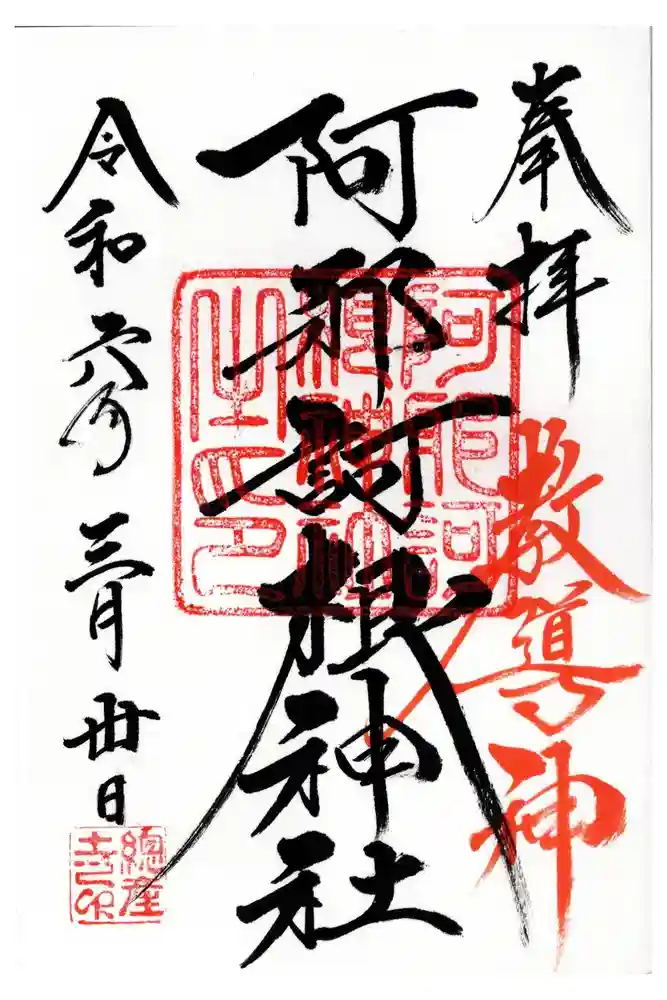 奉拝
教導神
阿邪訶根神社
阿邪訶
根神社
之印
令和六年三月卅日